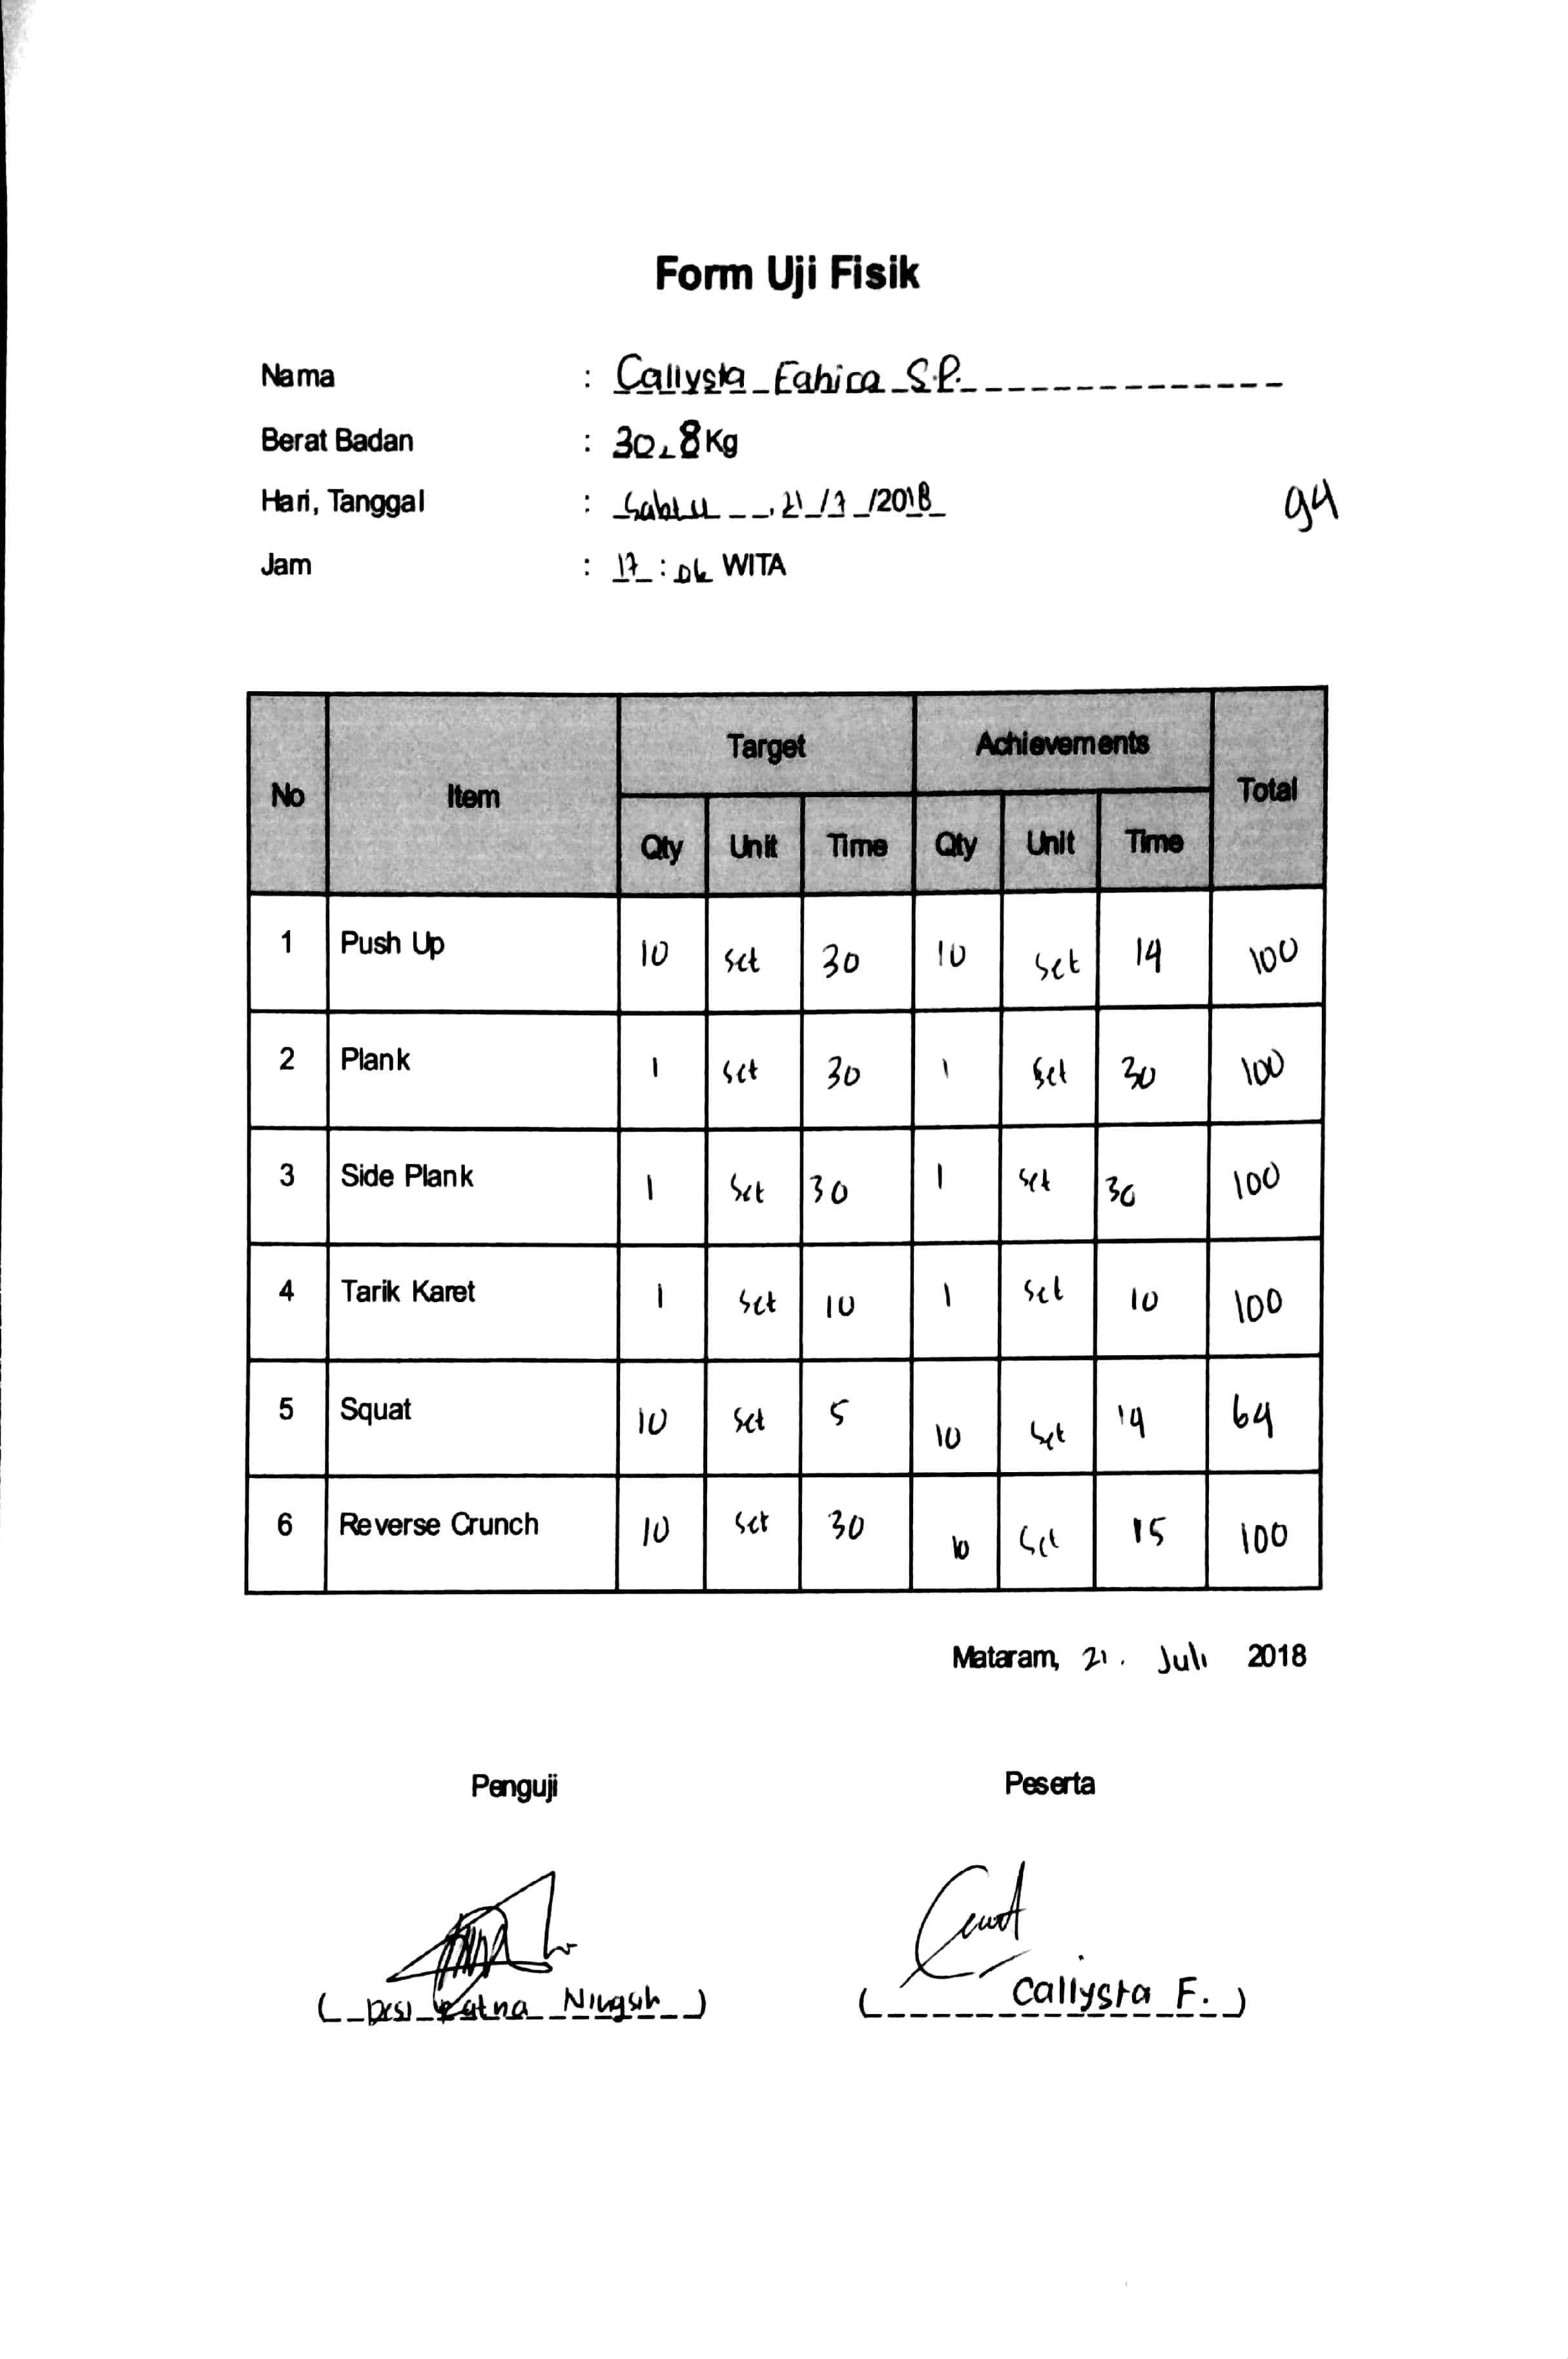 Form Uji Fisik
Nama : Callysta Fahira S.P.
Berat Badan : 30.8 Kg
Hari, Tanggal : Sabtu, 21/7/2018
94
Jam : 17 : 06 WITA
No Item Target Achievements Total
Qty Unit Time Qty Unit Time
1 Push Up 10 set 30 10 set 14 100
2 Plank 1 set 30 1 set 30 100
3 Side Plank 1 set 30 1 set 30 100
4 Tarik Karet 1 set 10 1 set 10 100
5 Squat 10 set 5 10 set 14 64
6 Reverse Crunch 10 set 30 10 set 15 100
Mataram, 21. Juli 2018
Penguji Peserta
(Desi Ratna Ningsih) (Callysta F.)